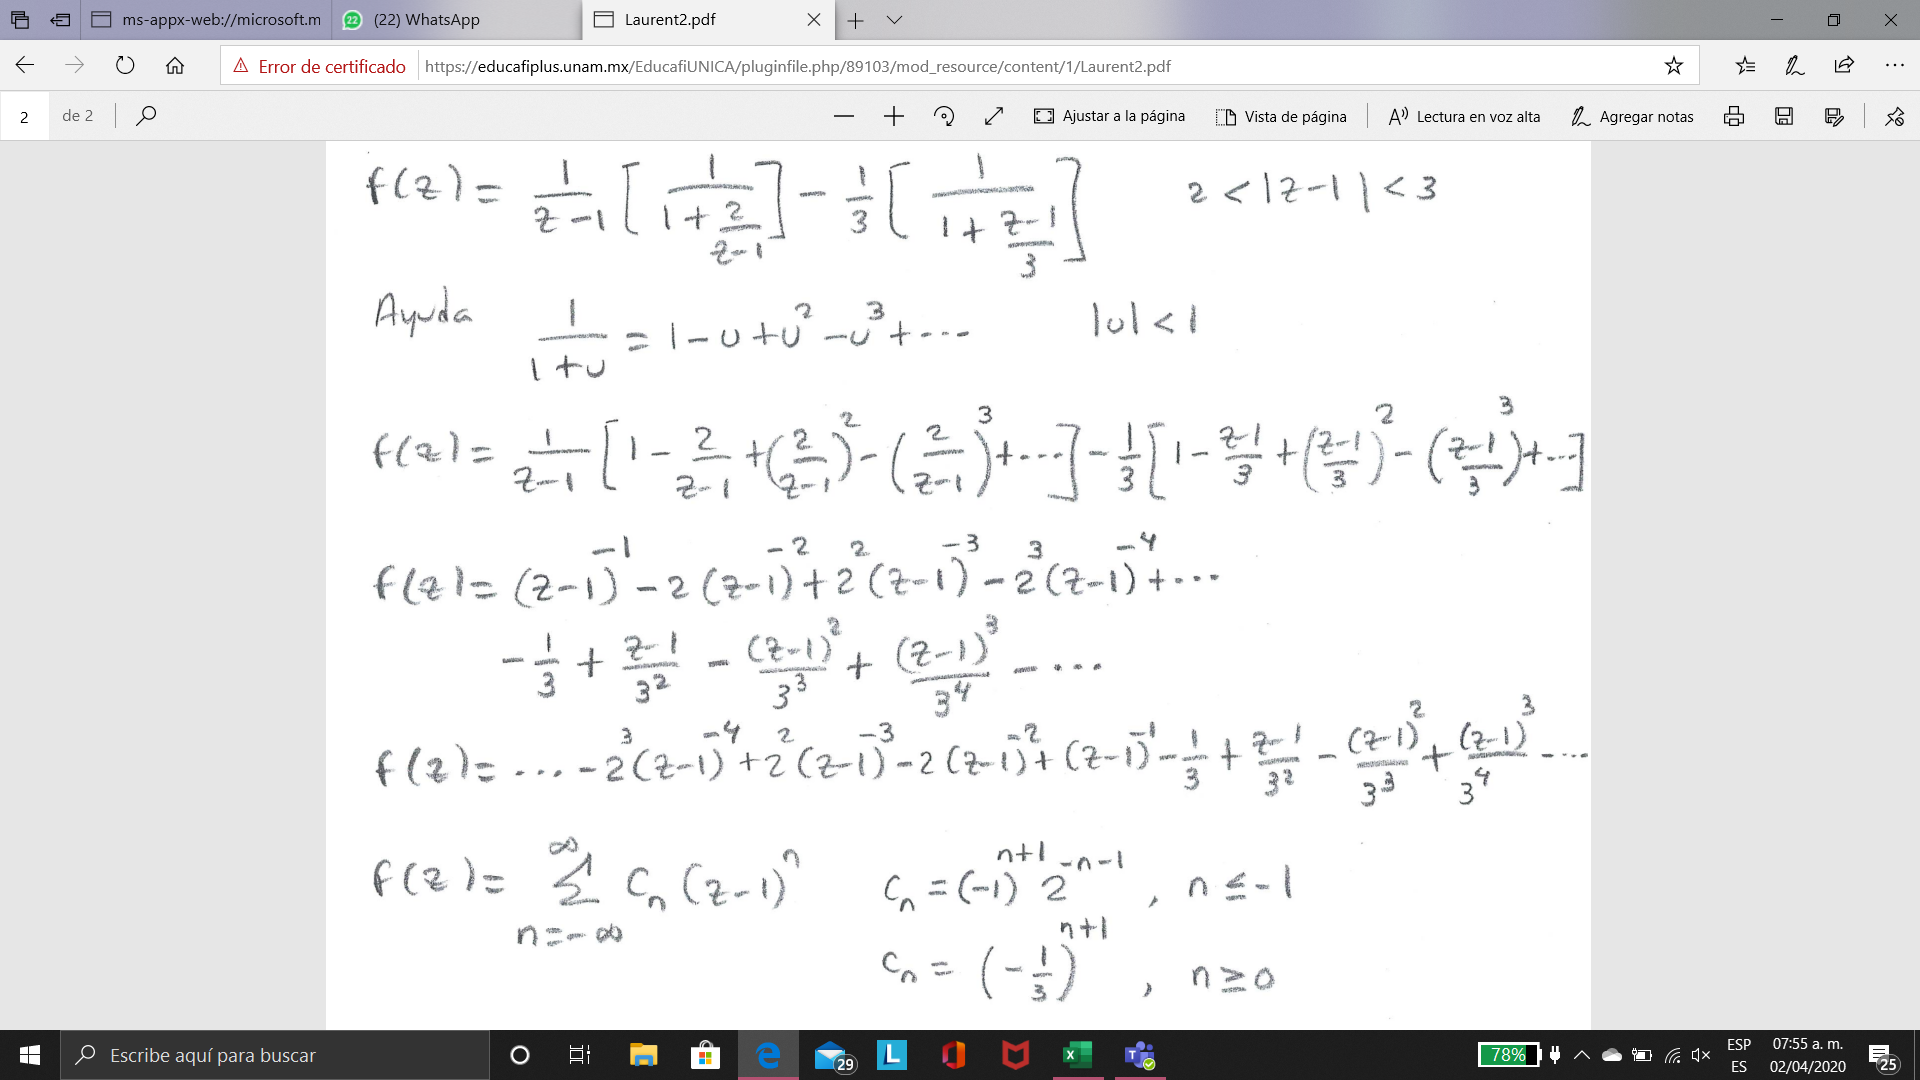 ms-appx-web://microsoft.m
22 (22) WhatsApp
Laurent2.pdf
Error de certificado https://educafiplus.unam.mx/EducafiUNICA/pluginfile.php/89103/mod_resource/content/1/Laurent2.pdf
2 de 2 Ajustar a la página Vista de página Lectura en voz alta Agregar notas
f(z) = 1/(z-1) [1/(1+2/(z-1))] - 1/3 [1/(1+(z-1)/3)] 2 < |z-1| < 3
Ayuda 1/(1+u) = 1 - u + u² - u³ + ... |u| < 1
f(z) = 1/(z-1) [1 - 2/(z-1) + (2/(z-1))² - (2/(z-1))³ + ...] - 1/3 [1 - (z-1)/3 + ((z-1)/3)² - ((z-1)/3)³ + ...]
f(z) = (z-1)⁻¹ - 2(z-1)⁻² + 2²(z-1)⁻³ - 2³(z-1)⁻⁴ + ...
- 1/3 + (z-1)/3² - (z-1)²/3³ + (z-1)³/3⁴ - ...
f(z) = ... - 2³(z-1)⁻⁴ + 2²(z-1)⁻³ - 2(z-1)⁻² + (z-1)⁻¹ - 1/3 + (z-1)/3² - (z-1)²/3³ + (z-1)³/3⁴ - ...
f(z) = ∑_{n=-∞}^{∞} Cₙ (z-1)ⁿ Cₙ = (-1)ⁿ⁺¹ 2⁻ⁿ⁻¹ , n ≤ -1
Cₙ = (-1/3)ⁿ⁺¹ , n ≥ 0
Escribe aquí para buscar
29
L
78%
ESP
ES
07:55 a. m.
02/04/2020
25